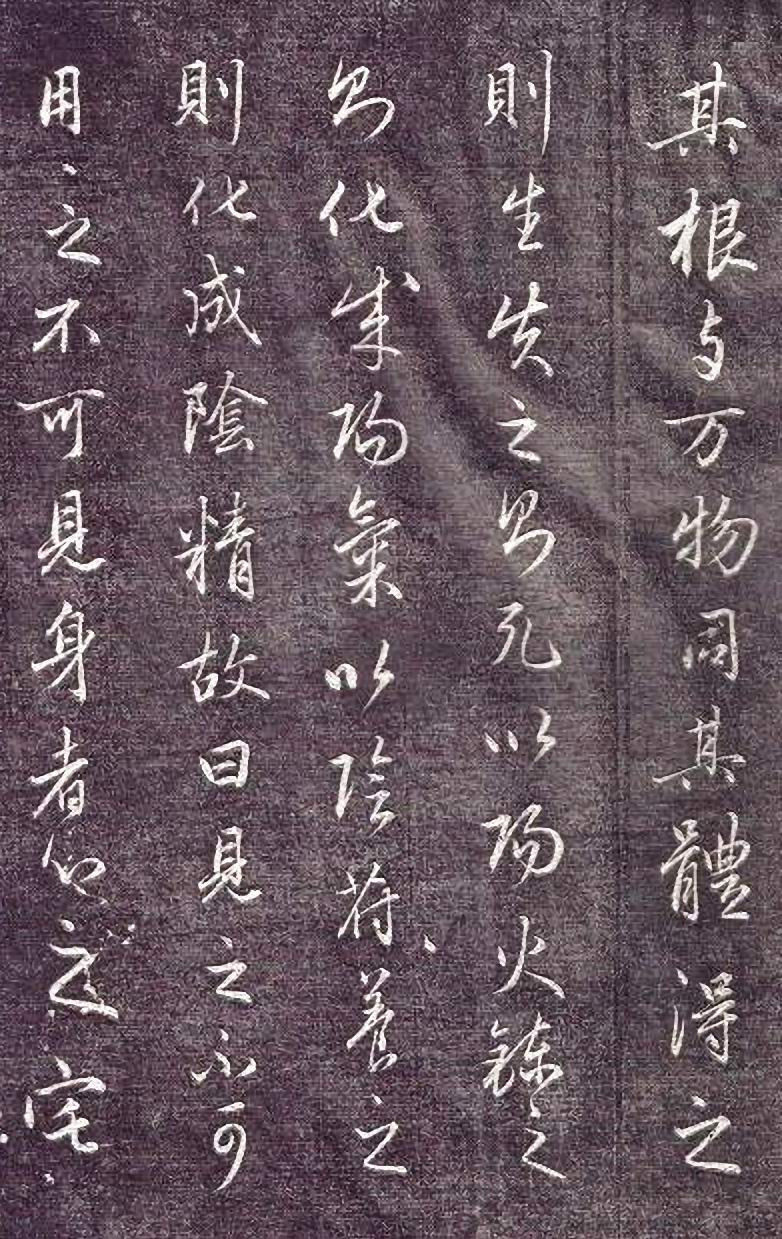 其根与万物同其體得之
則生失之則死以陽火鍊之
則化成陽氣以陰符養之
則化成陰精故曰見之不可
用、之不可見身者心之宅